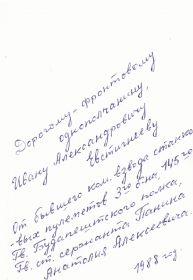 Дорогому - фронтовому
однополчанину,
Ивану Александровичу
Евстигнееву
От бывшего ком. взвода станко-
-вых пулеметов 3го б-на, 145го
Гв. Будапештского полка,
Гв. ст. сержанта Панина
Анатолия Алексеевича.
1988 год.